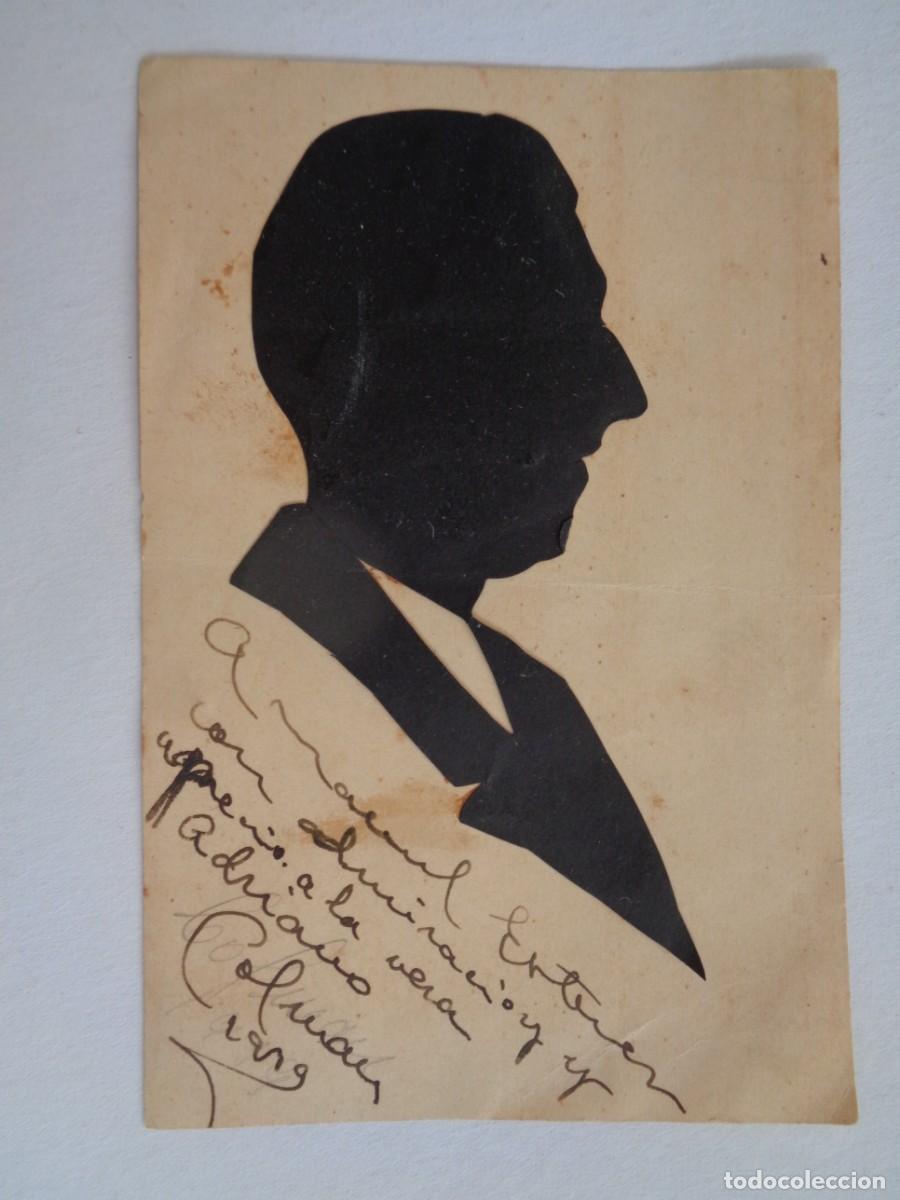 A Manuel Esteve
con admiración y
aprecio. a la vera
Adriano
Colman
todocoleccion